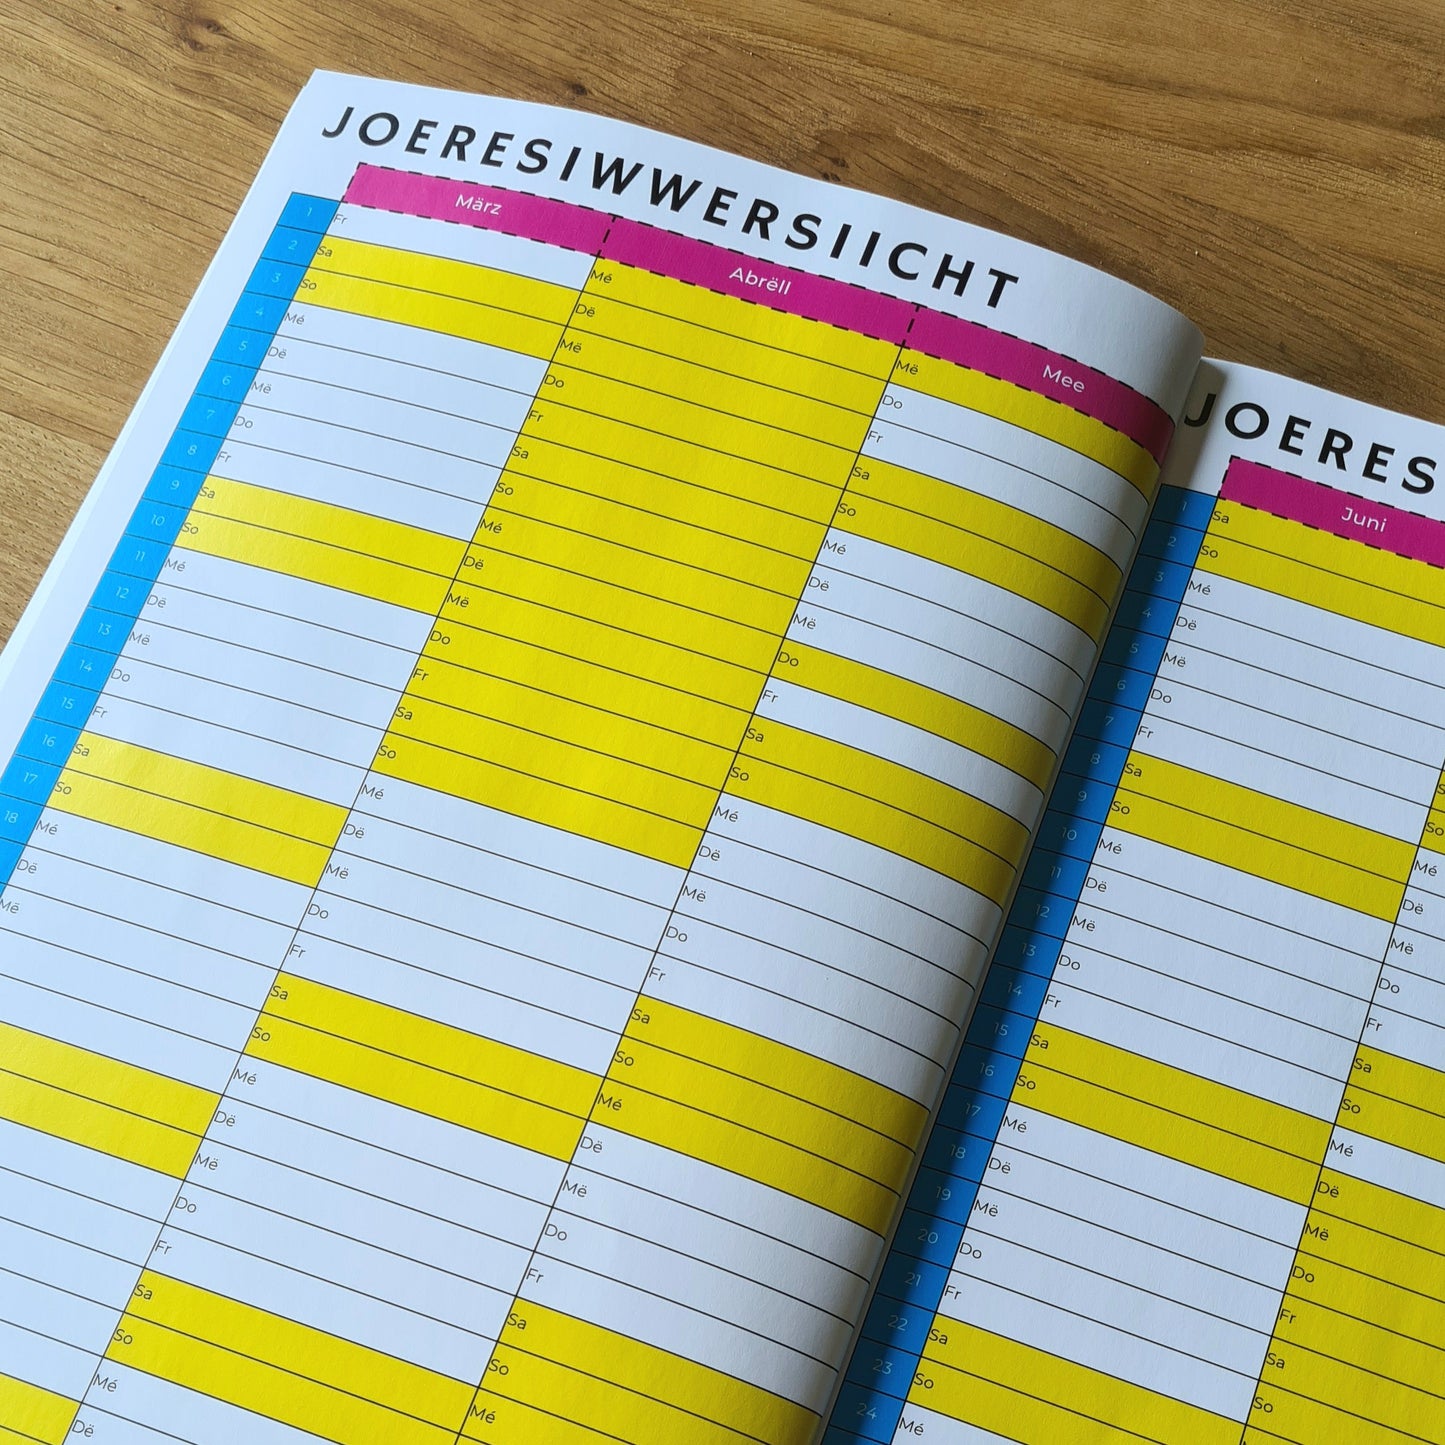 JOERESIWWERSIICHT
März Abrëll Mee
1 Fr
2 Sa
3 So
4 Mé
5 Dë
6 Më
7 Do
8 Fr
9 Sa
10 So
11 Mé
12 Dë
13 Më
14 Do
15 Fr
16 Sa
17 So
18 Mé
Dë
Më
Mé
Dë
Më
Do
Fr
Sa
So
Mé
Dë
Më
Do
Fr
Sa
So
Mé
Dë
Më
Do
Fr
Sa
So
Mé
Dë
Më
Do
Fr
Sa
So
Mé
Dë
Më
Do
Fr
Sa
So
Mé
Dë
Më
Do
Fr
Sa
So
Mé
Dë
Më
Do
Fr
Sa
So
Mé
Dë
Më
Do
Fr
Sa
So
Mé
JOERES
Juni
1 Sa
2 So
3 Mé
4 Dë
5 Më
6 Do
7 Fr
8 Sa
9 So
10 Mé
11 Dë
12 Më
13 Do
14 Fr
15 Sa
16 So
17 Mé
18 Dë
19 Më
20 Do
21 Fr
22 Sa
23 So
24 Mé
So
Mé
Dë
Më
Do
Fr
Sa
So
Mé
Dë
Më
Do
Fr
Sa
So